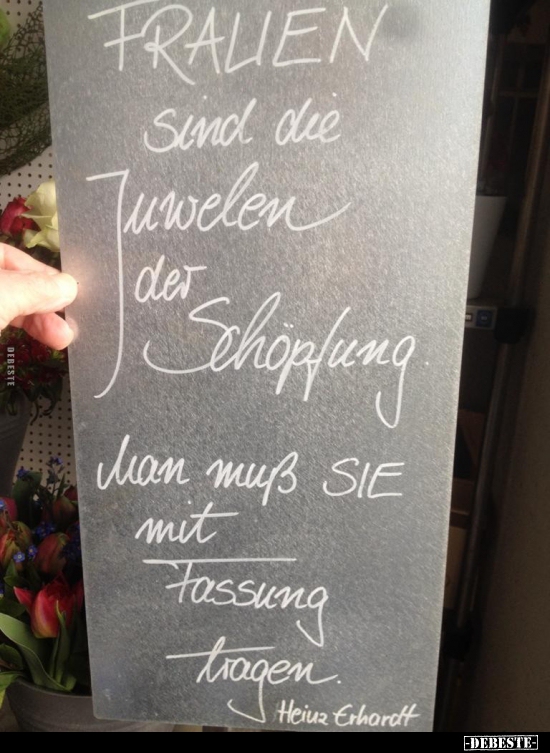 FRAUEN
sind die
Juwelen
der
Schöpfung.
Man muß SIE
mit
Fassung
tragen.
Heinz Erhardt
DEBESTE
-DEBESTE-